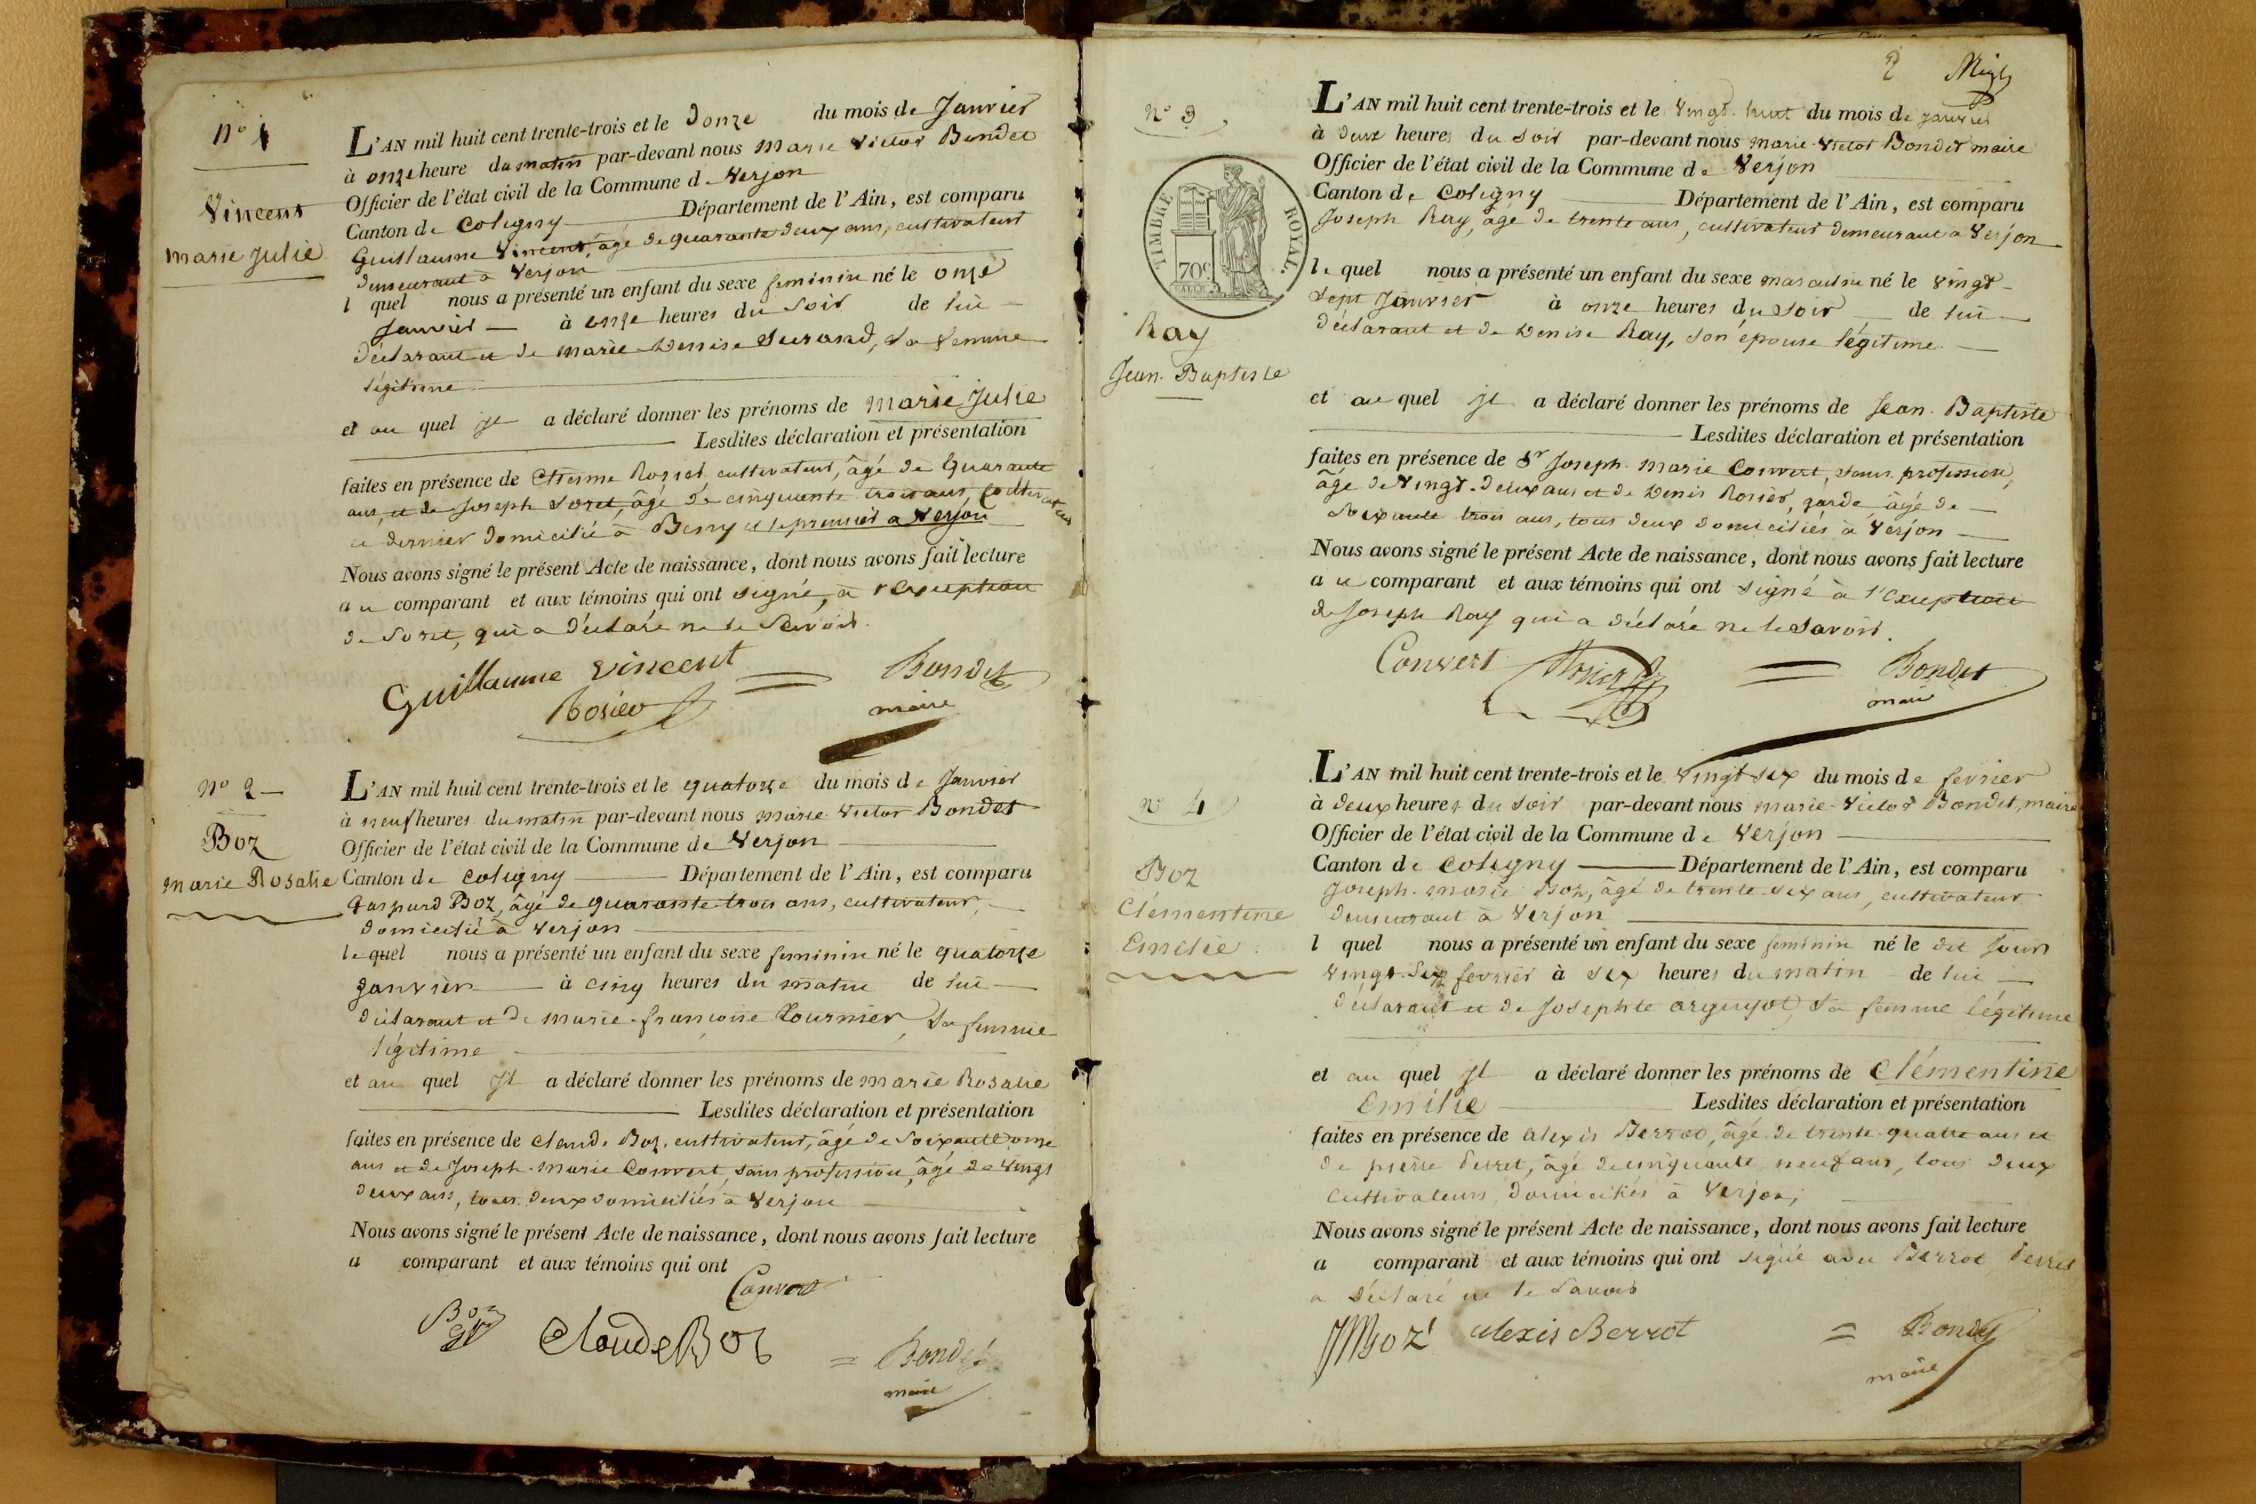 N° 1
Vincent
marie Julie
L'AN mil huit cent trente-trois et le Donze du mois de Janvier
à onze heure du matin par-devant nous Marie Victor Bondet
Officier de l'état civil de la Commune de Verjon
Canton de Coligny Département de l'Ain, est comparu
Guillaume Vincent, âgé de quarante deux ans, cultivateur
demeurant à Verjon
l quel nous a présenté un enfant du sexe feminin né le onze
Janvier à onze heures du Soir de lui
déclarant et de Marie Denise Durand, Sa femme
légitime
et au quel il a déclaré donner les prénoms de Marie Julie
Lesdites déclaration et présentation
faites en présence de Etienne Rosier cultivateur, âgé de Quarante
ans, et de Joseph Soret, âgé de cinquante trois ans, Cultivateur
ce dernier Domicilié à Beny et le premier a Verjon
Nous avons signé le présent Acte de naissance, dont nous avons fait lecture
au comparant et aux témoins qui ont signé, à l'exception
de Soret, qui a déclaré ne le Savoir.
Guillaume vincent
Rosier
Bondet
maire
N° 2
Boz
Marie Rosalie
L'AN mil huit cent trente-trois et le quatorze du mois de Janvier
à neuf heures du matin par-devant nous Marie Victor Bondet
Officier de l'état civil de la Commune de Verjon
Canton de Coligny Département de l'Ain, est comparu
Gaspard Boz, âgé de quarante trois ans, cultivateur,
domicilié à Verjon
lequel nous a présenté un enfant du sexe feminin né le quatorze
Janvier à cinq heures du matin de lui
déclarant et de Marie françoise Tournier, Sa femme
légitime
et au quel il a déclaré donner les prénoms de Marie Rosalie
Lesdites déclaration et présentation
faites en présence de Claude Boz, cultivateur, âgé de Soixante onze
ans et de Joseph Marie Convert, sans profession, âgé de vingt
deux ans, tous deux domiciliés à Verjon
Nous avons signé le présent Acte de naissance, dont nous avons fait lecture
a comparant et aux témoins qui ont
Convert
Boz
Claude Boz
Bondet
maire
2
N° 3
TIMBRE ROYAL
70c
Ray
Jean Baptiste
L'AN mil huit cent trente-trois et le vingt huit du mois de janvier
à deux heures du soir par-devant nous Marie Victor Bondet maire
Officier de l'état civil de la Commune de Verjon
Canton de Coligny Département de l'Ain, est comparu
Joseph Ray, âgé de trente ans, cultivateur demeurant à Verjon
le quel nous a présenté un enfant du sexe masculin né le vingt
Sept Janvier à onze heures du Soir de lui
déclarant et de Denise Ray, son épouse légitime
et au quel il a déclaré donner les prénoms de Jean Baptiste
Lesdites déclaration et présentation
faites en présence de Sr Joseph Marie Convert, sans profession,
âgé de Vingt deux ans et de Denis Rosier, garde, âgé de
Soixante trois ans, tous deux domiciliés à Verjon
Nous avons signé le présent Acte de naissance, dont nous avons fait lecture
au comparant et aux témoins qui ont signé à l'exception
de Joseph Ray qui a déclaré ne le Savoir.
Convert
Rosier
Bondet
maire
N° 4
Boz
Clementine
Emelie
L'AN mil huit cent trente-trois et le vingt six du mois de fevrier
à deux heures du soir par-devant nous Marie Victor Bondet, maire
Officier de l'état civil de la Commune de Verjon
Canton de Coligny Département de l'Ain, est comparu
Joseph Marie Boz, âgé de trente six ans, cultivateur
demeurant à Verjon
l quel nous a présenté un enfant du sexe feminin né le dit jour
vingt Six fevrier à six heures du matin de lui
déclarant et de Josephte arguyot, Sa femme légitime
et au quel il a déclaré donner les prénoms de Clémentine
Emilie Lesdites déclaration et présentation
faites en présence de Alexis Berrot, âgé de trente quatre ans et
de pierre Perret, âgé de cinquante neuf ans, tous deux
Cultivateurs domiciliés à Verjon,
Nous avons signé le présent Acte de naissance, dont nous avons fait lecture
a comparant et aux témoins qui ont signé avec Berrot Perret
a déclaré ne le Savoir
JMBoz
Alexis Berrot
Bondet
maire